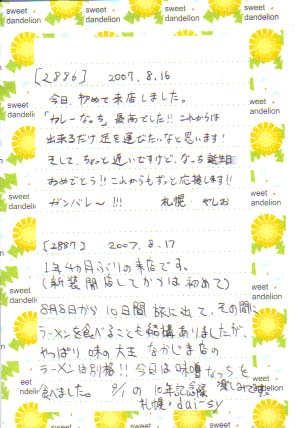 sweet dandelion
[2886] 2007.8.16
今日、初めて来店しました。
「カレーなっち」最高でした!! これからは
出来るだけ足を運びたいなと思います!
そして、ちょっと遅いですけど、なっち誕生日
おめでとう!! これからもずっと応援します!!
ガンバレ～!!! 札幌 やしお
[2887] 2007.8.17
1年4カ月ぶりの来店です。
(新装開店してからは初めて)
8月8日から10日間旅に出て、その間に
ラーメンを食べることも結構ありましたが、
やっぱり味の大王 なかじま店の
ラーメンは別格!! 今日は味噌なっちを
食べました。 9/1の10年記念祭 楽しみです。
札幌・dai-sy